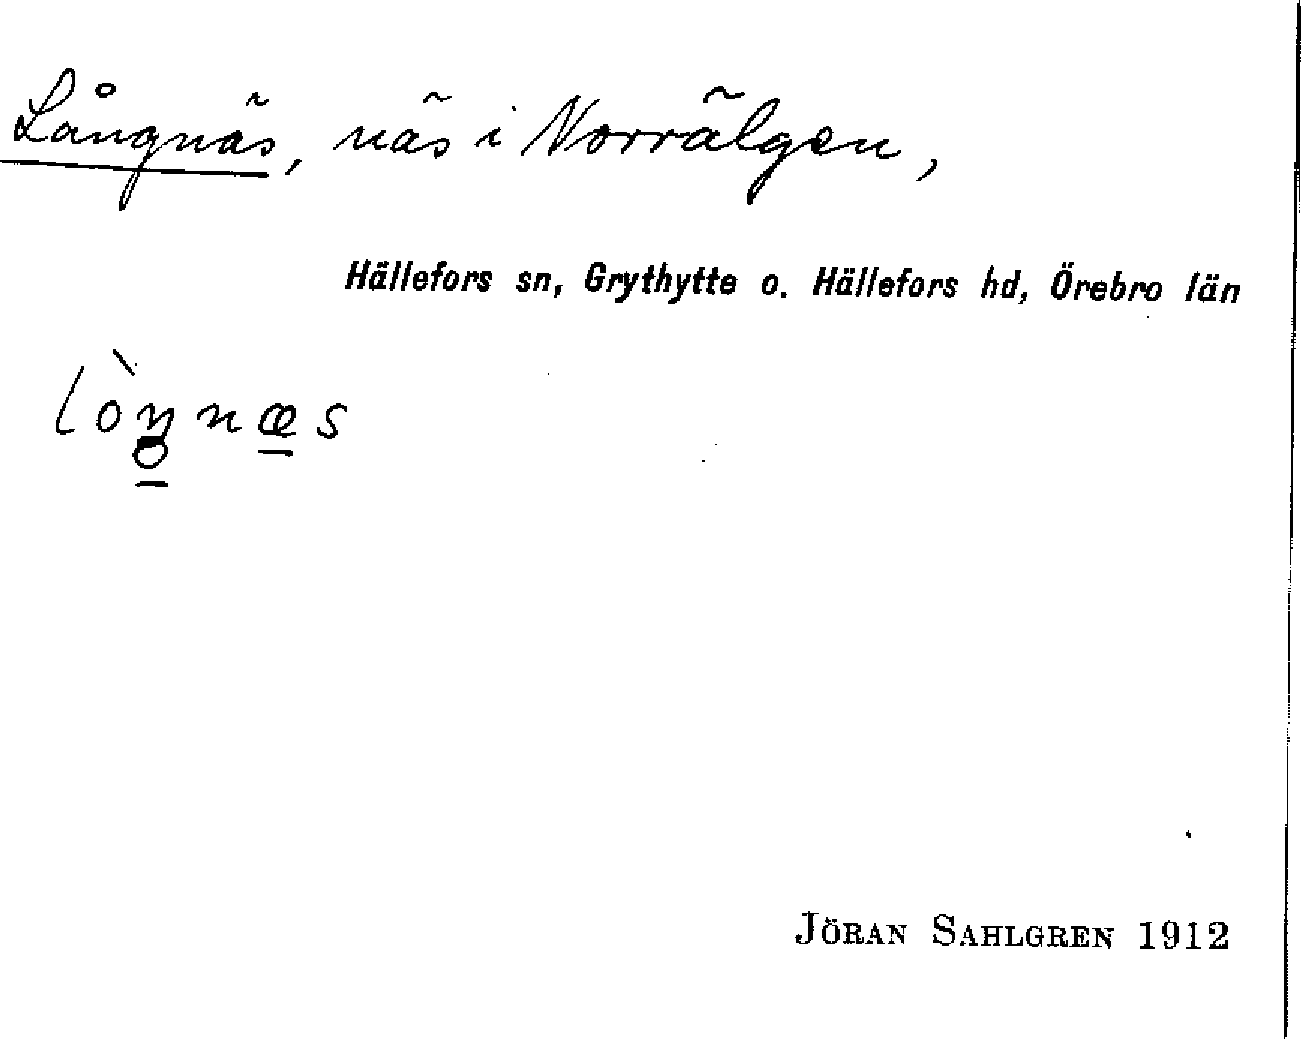 Långnäs, näs i Norrälgen,
Hällefors sn, Grythytte o. Hällefors hd, Örebro län
lòŋ̥̱næ̱s
JÖRAN SAHLGREN 1912